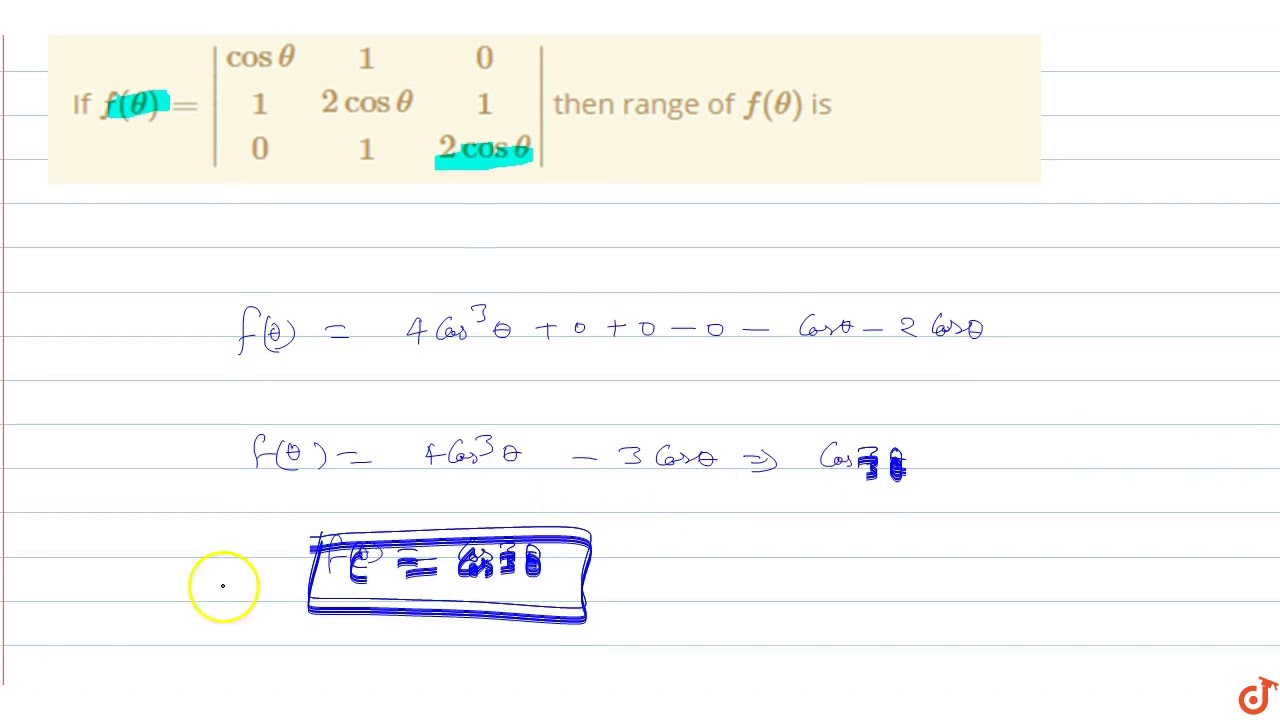 If f(θ) = | cos θ 1 0 |
| 1 2 cos θ 1 | then range of f(θ) is
| 0 1 2 cos θ |
f(θ) = 4 Cos³θ + 0 + 0 - 0 - Cosθ - 2 Cosθ
f(θ) = 4 Cos³θ - 3 Cosθ ⇒ Cos3θ
f(θ) = Cos3θ